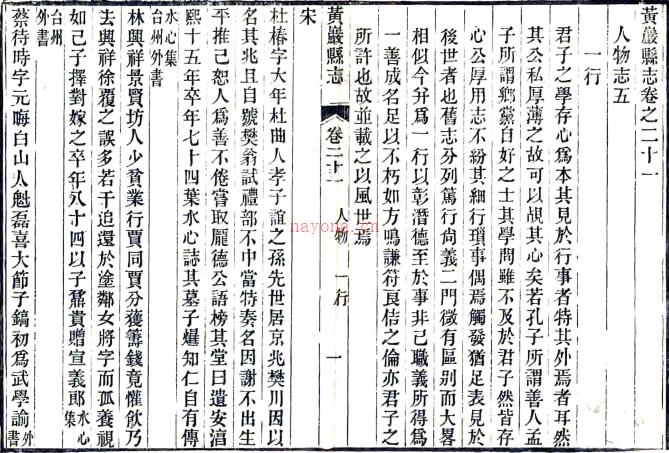 黃巖縣志卷之二十一
人物志五
一行
君子之學存心爲本其見於行事者特其外焉者耳然
其公私厚薄之故可以覘其心矣若孔子所謂善人孟
子所謂鄉黨自好之士其學問雖不及於君子然皆存
心公厚用志不紛其細行瑣事偶焉觸發猶足表見於
後世者也舊志分列篤行尚義二門微有區別而大畧
相似今幷爲一行以彰潛德至於事非己職義所得爲
一善成名足以不朽如方鳴謙符良佶之倫亦君子之
所許也故並載之以風世焉
黃巖縣志
卷二十一
人物
一行
一
宋
杜椿字大年杜曲人孝子誼之孫先世居京兆樊川因以
名其兆且自號樊翁試禮部不中當特奏名因謝不出生
平推己恕人爲善不倦嘗取龐德公語榜其堂曰遺安淳
熙十五年卒年七十四葉水心誌其墓子燁知仁自有傳
水心集
台州外書
林興祥景賢坊人少貧業行賈同賈分獲籌錢竟懽飲乃
去興祥徐覆之誤多若干追還於塗鄰女將字而孤養視
如己子擇對嫁之卒年八十四以子鼐貴贈宣義郎水心集
台州
外書
蔡待時字元晦白山人魁磊喜大節子鎬初爲武學諭外書
hayona.cn